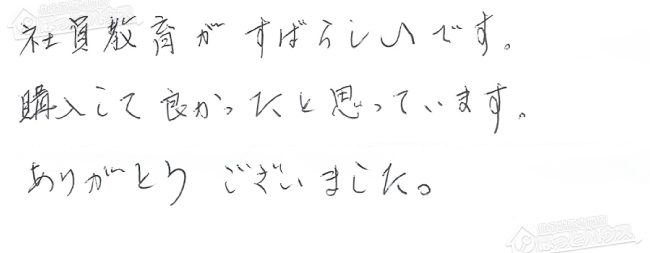 社員教育がすばらしいです。
購入して良かったと思っています。
ありがとうございました。